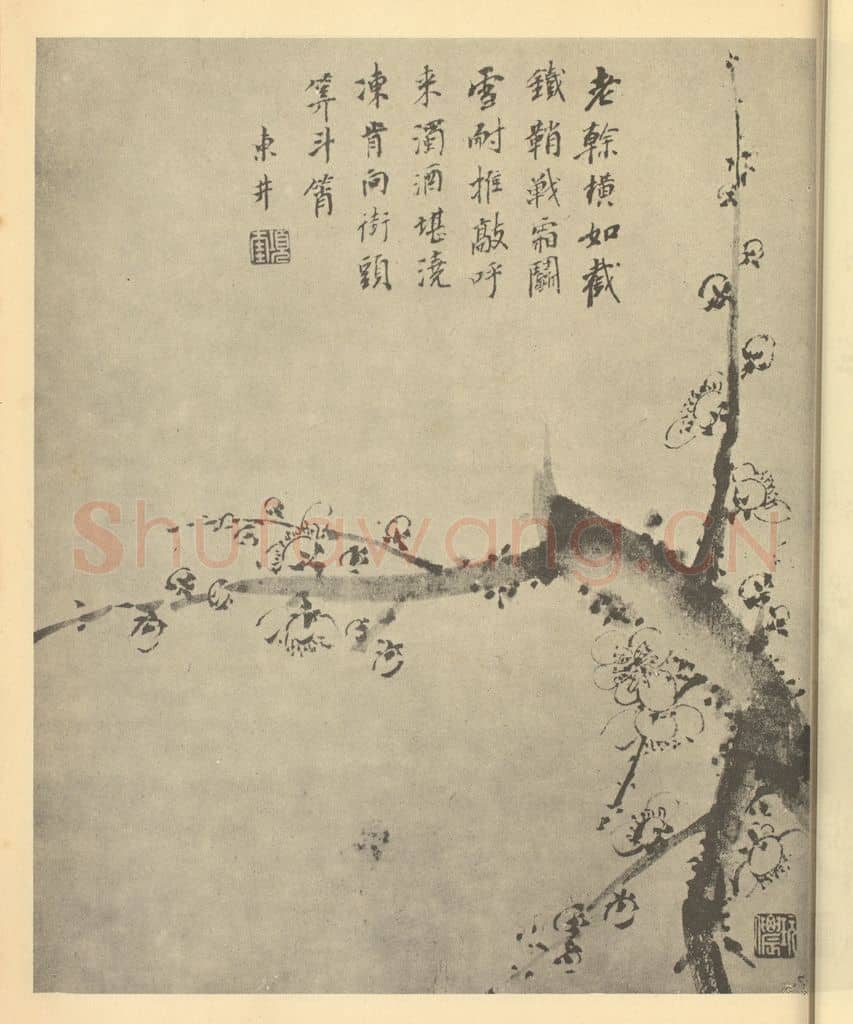 老榦橫如截
鐵鞘戰霜鬭
雪耐推敲呼
来濁酒堪澆
凍肯向街頭
筭斗筲
東井
Shufawang.CN